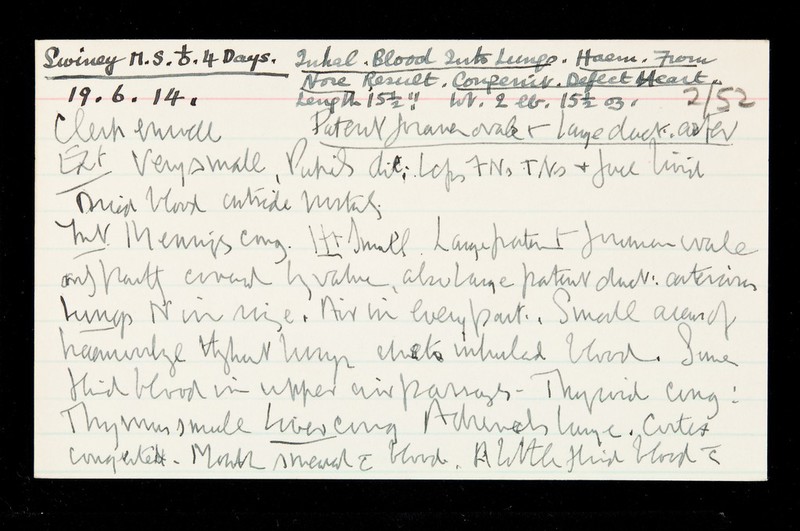 Swiney M.S. 4 Days. Inhal. Blood Into Lungs. Haem. From
Nose Result. Congenit. Defect Heart.
19. 6. 14. Length 15½" Wt. 2 lb. 15½ oz. 2/52
Patent foramen ovale + Large duct. arter
Ext Very small, Pupils dil; Lips F Ns T Ns + face livid
Dried blood outside nostrils
Int Meninges cong. Ht Small. Large patent foramen ovale
only partly covered by valve, also Large patent duct: arteriosus
Lungs N in size. Air in every part. Small areas of
haemorrhage thro'out lungs inhaled blood. Some
fluid blood in upper air passages - Thyroid cong:
Thymus small Liver cong Adrenals large. Cortex
congested. Mouth smeared c̄ blood. A little fluid blood c̄